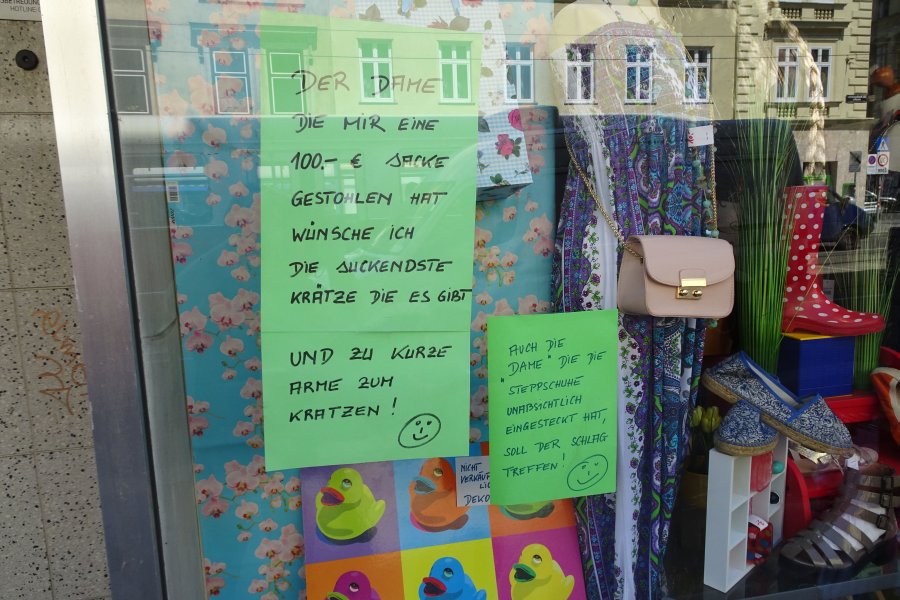 DER DAME
DIE MIR EINE
100,- € JACKE
GESTOHLEN HAT
WÜNSCHE ICH
DIE JUCKENDSTE
KRÄTZE DIE ES GIBT
UND ZU KURZE
ARME ZUM
KRATZEN!
AUCH DIE
"DAME" DIE DIE
"STEPPSCHUHE
UNABSICHTLICH
EINGESTECKT HAT,
SOLL DER SCHLAG
TREFFEN!
NICHT
VERKÄUF
LICH
DEKO